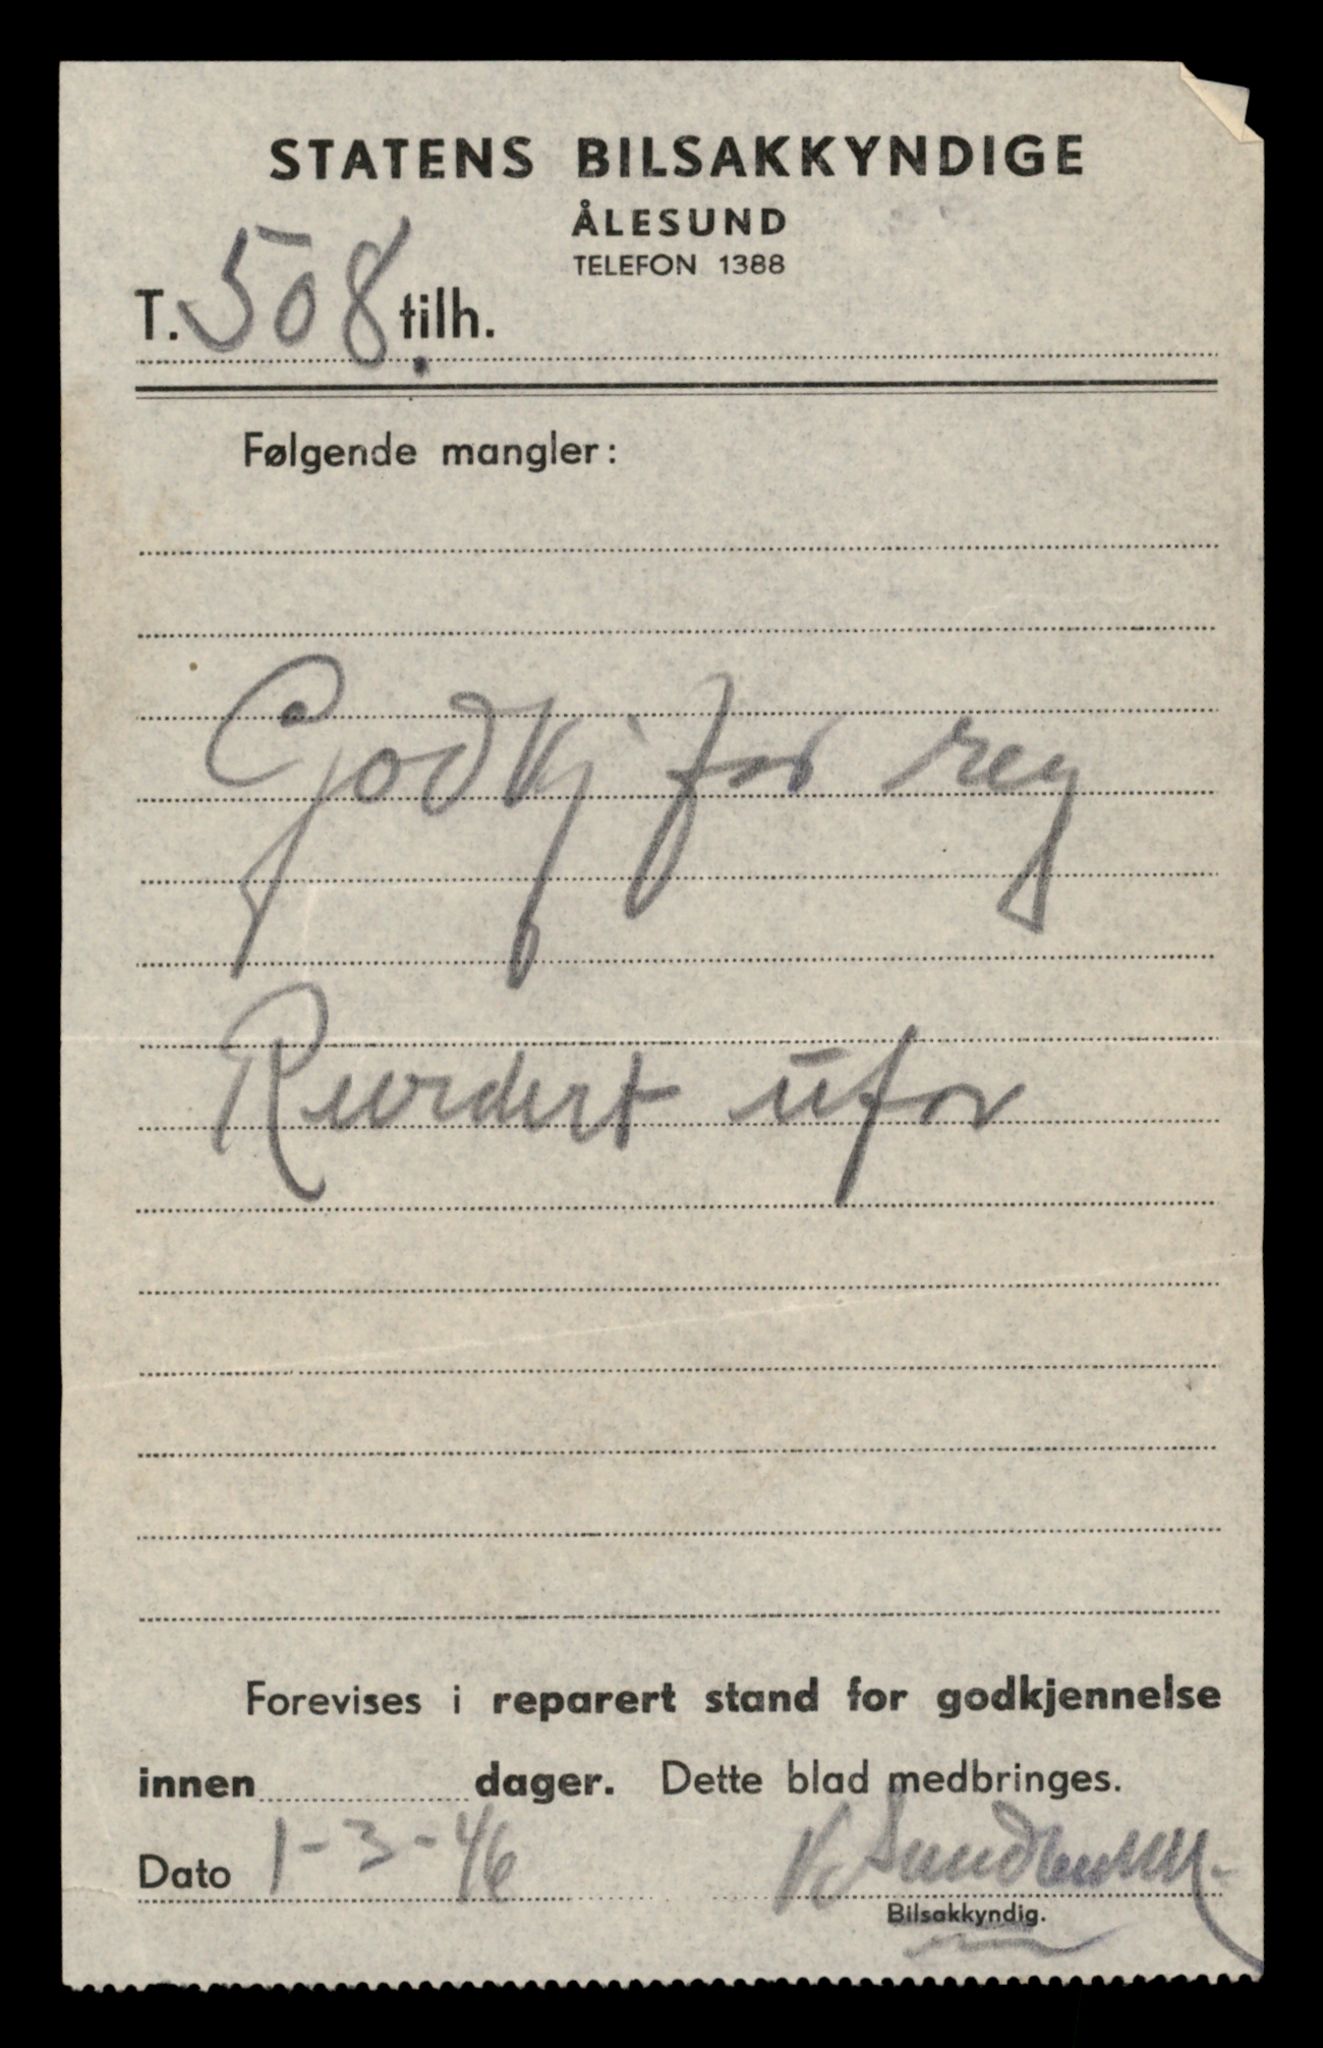 STATENS BILSAKKYNDIGE
ÅLESUND
TELEFON 1388
T. 508 tilh.
Følgende mangler:
Godkj for reg
Rurdert ufor
Forevises i reparert stand for godkjennelse
innen dager. Dette blad medbringes.
Dato 1-3-46
Bilsakkyndig.